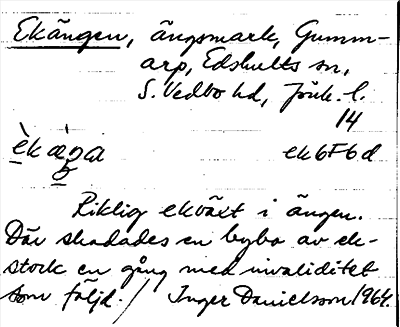 Ekängen, ängsmark, Gumm-
arp, Edshults sn,
S. Vedbo hd, Jönk. l.
14
èkæŋa ek6F6d
Riklig ekväxt i ängen.
Där skadades en bybo av ek-
stock en gång med invaliditet
som följd. / Inger Danielsson 1964.